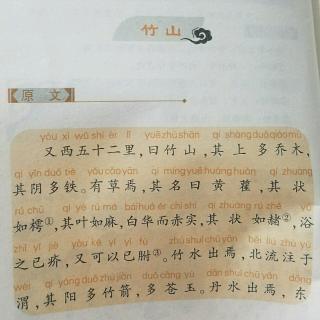 竹山
原文
yòu xī wǔ shí èr lǐ yuē zhú shān qí shàng duō qiáo mù
又西五十二里，曰竹山，其上多乔木，
qí yīn duō tiě yǒu cǎo yān qí míng yuē huáng guàn qí zhuàng
其阴多铁。有草焉，其名曰黄雚，其状
rú chū qí yè rú má bái huā ér chì shí qí zhuàng rú zhě yù
如樗①，其叶如麻，白华而赤实，其状如赭②，浴
zhī yǐ jiè yòu kě yǐ yǐ fū zhú shuǐ chū yān běi liú zhù yú
之已疥，又可以已胕③。竹水出焉，北流注于
wèi qí yáng duō zhú jiàn duō cāng yù dān shuǐ chū yān dōng
渭，其阳多竹箭，多苍玉。丹水出焉，东